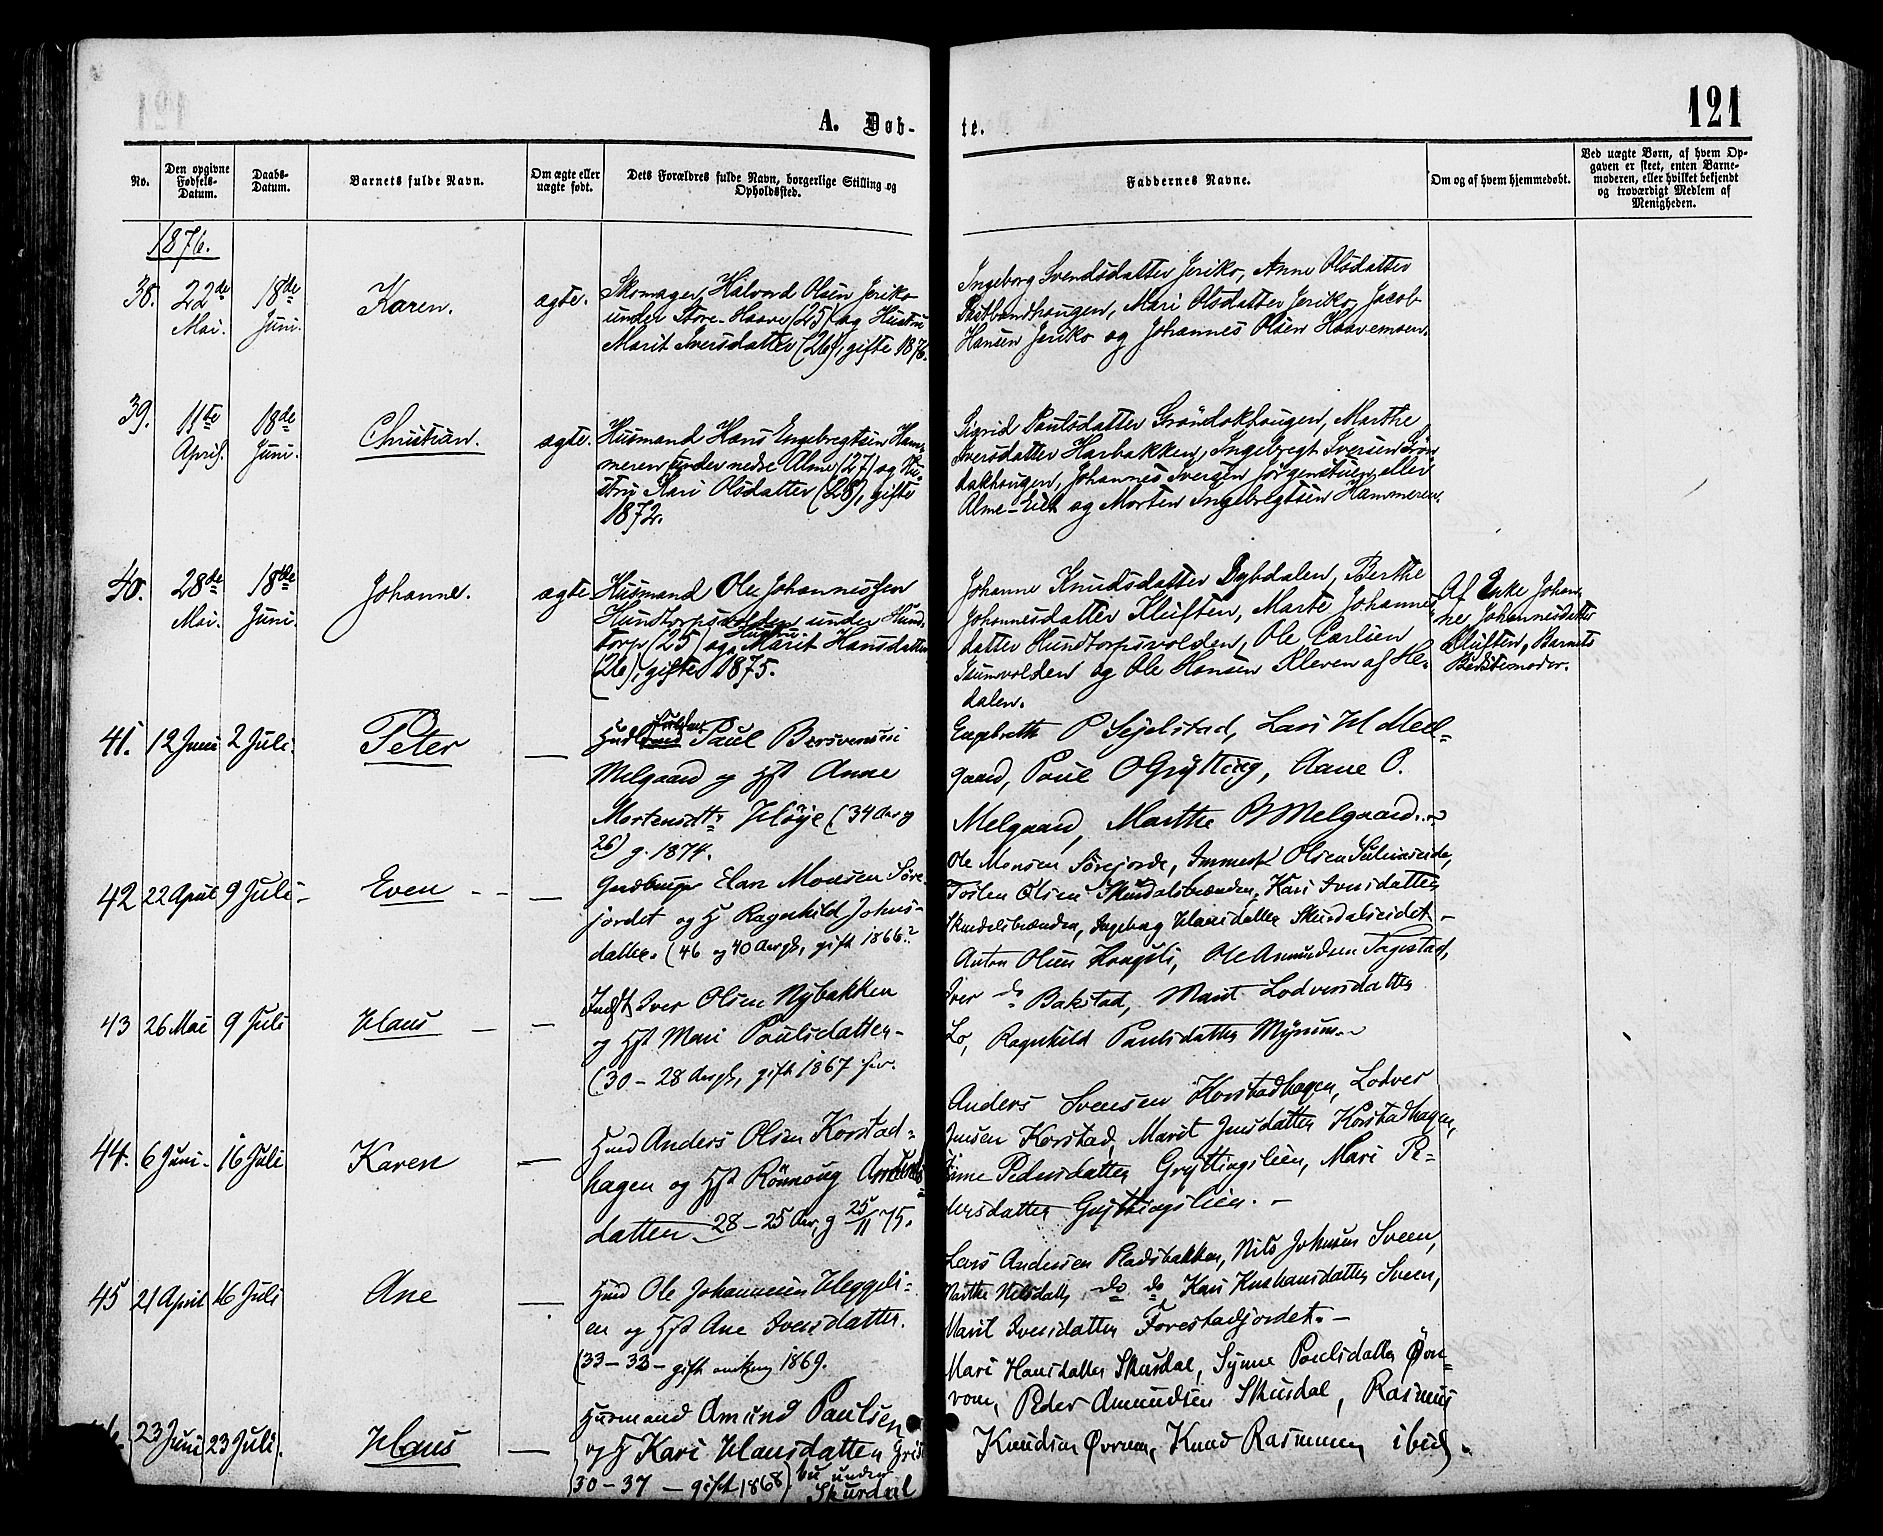 121
A. Døb-
te.
No.
Den opgivne
Fødsels-
Datum.
Daabs-
Datum.
Barnets fulde Navn.
Om ægte eller
uægte født.
Dets Forældres fulde Navn, borgerlige Stilling og
Opholdssted.
Faddernes Navne.
Om og af hvem hjemmedøbt.
Ved uægte Børn, af hvem Op-
gaven er skeet, enten Barne-
moderen, eller hvilket bekjendt
og troværdigt Medlem af
Menigheden.
1876.
38.
22de
Mai.
18de
Juni.
Karen.
ægte.
Skomager Halvord Olsen Jeriko
under Store-Haave (25) og Hustru
Marit Iversdatter (26), gifte 1876.
Ingeborg Svendsdatter Jeriko, Anne Olsdatter
Mari Olsdatter Jeriko, Jacob
Hansen Jeriko og Johannes Olsen Haavemoen.
39.
11te
April.
18de
Juni.
Christian.
ægte.
Husmand Hans Engebregtsen Ham-
meren under nedre Alme (27) og Hu-
stru Kari Olsdatter (28), gifte
1872.
Sigrid Paulsdatter Grøndokhaugen, Marthe
Iversdatter Harbakken, Ingebregt Iversen Grøn-
dokhaugen, Johannes Iversen Jørgenstuen eller
Alme-Eiet og Morten Ingebregtsen Hammeren.
40.
28de
Mai.
18de
Juni.
Johanne.
ægte.
Husmand Ole Johannessen
Hundtorpsvolden under Hund-
torp (25) og Hustru Marit Hansdatter
(26), gifte 1875.
Johanne Knudsdatter Dybdalen, Berthe
Johannesdatter Kluften, Marte Johannes-
datter Hundtorpsvolden, Ole Carlsen
Isumvolden og Ole Hansen Kleven af He-
dalen.
Af Enke Johan-
ne Johannesdatter
Kluften, Barnets
Bedstemoder.
41.
12 Juni
2 Juli
Peter
—
Paul Bersvensen
Melgaard og Hst Anne
Mortensdtr Kløje (34 Aar og
26) g. 1874.
Engebreth P Sejelstad, Lars H Mel-
gaard, Poul O Grytting, Aane P.
Melgaard, Marthe B Melgaard.
42
22 April
9 Juli
Even
—
Gaardbruger Elan Monsen Søre-
jordet og H Ragnhild Johns-
datter. (46 og 40 Aar gl, gift 1866?
Ole Monsen Sørejorde, Olsen
Tosten Olsen Skurdalsbrænden, Kari Iversdatter
Skurdalsbrænden, Ingebog Hansdatter Skurdalseidet —
43
26 Mai
9 Juli
Hans
—
Indst Iver Olsen Nybakken
og Hst Mari Paulsdatter —
(30 – 28 Aar gl, gift 1867 her.
Anton Olsen Haugsli, Ole Amundsen Tagestad,
Iver do Bakstad, Marit Lodversdatter
Lo, Ragnhild Paulsdatter
44.
6 Juni.
16 Juli
Karen
—
Hmd Anders Olsen Korstad-
hagen og Hst Rønnoug
datter 28 – 25 Aar, g 25/11 75.
Anders Svensen Korstadhagen, Lodver
Jensen Korstad, Marit Jensdatter Korstadhagen,
Pedersdatter Gryttingslien, Mari Pe-
dersdatter Gryttingslien. —
45
21 April
16 Juli
Ane
—
Hmd Ole Johannesen Heggeli-
en og Hst Ane Iversdatter.
(33 – 33 – gift 1869.
Lars Andersen Pladsbakken, Nils Johnsen Sveen,
Marthe Nilsdatter do do, Kari Sveen,
Marit Iversdatter Forestadjordet. —
23 Juni
23 Juli.
Hans
—
Husmand Amund Paulsen
og H Kari Hansdatter
30 – 37 – gift 1868) bu under
Skurdal
Mari Hansdatter Skurdal, Synne Poulsdatter Øv-
rom, Peder Amundsen Skurdal, Rasmus
Knudsen Øvrom, Knud Rasmussen ibid.